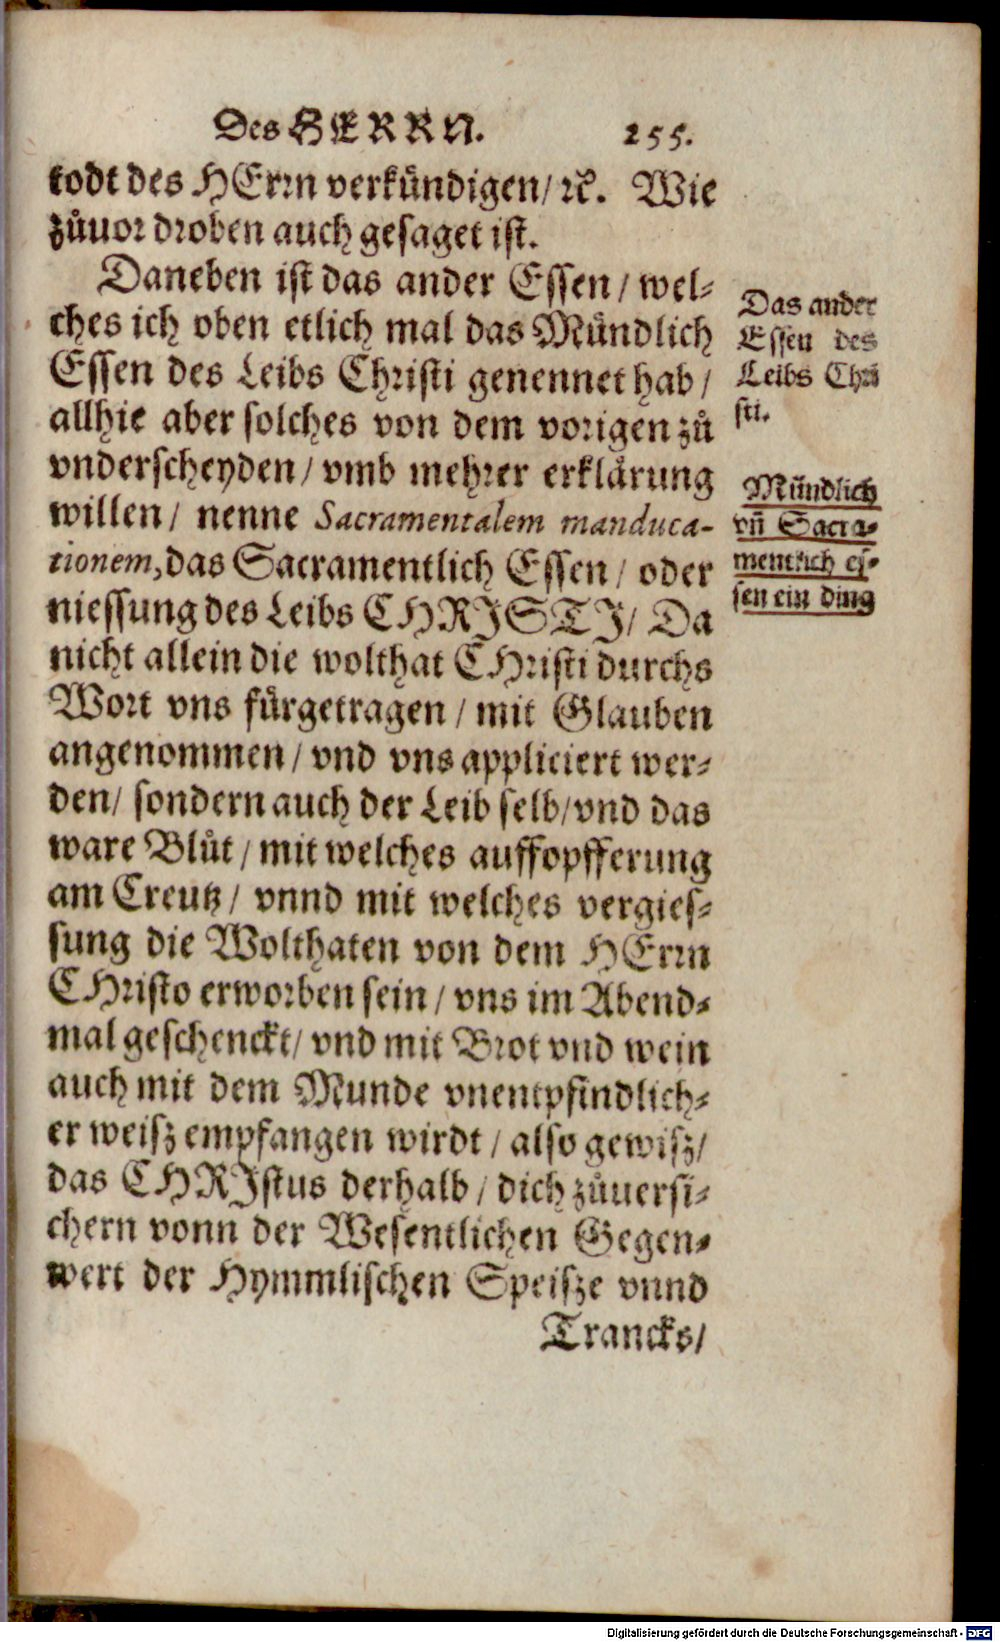 Des HERRN. 255.
todt des HErrn verkündigen/ ꝛc. Wie
zůuor droben auch gesaget ist.
Daneben ist das ander Essen / wel⸗
ches ich oben etlich mal das Mündlich
Essen des Leibs Christi genennet hab /
allhie aber solches von dem vorigen zů
vnderscheyden / vmb mehrer erklärung
willen / nenne Sacramentalem manduca-
tionem, das Sacramentlich Essen / oder
niessung des Leibs CHRISTI / Da
nicht allein die wolthat CHristi durchs
Wort vns fürgetragen / mit Glauben
angenommen / vnd vns appliciert wer⸗
den / sondern auch der Leib selb / vnd das
ware Blůt / mit welches auffopfferung
am Creutz / vnnd mit welches vergies⸗
sung die Wolthaten von dem HErrn
CHristo erworben sein / vns im Abend⸗
mal geschenckt / vnd mit Brot vnd wein
auch mit dem Munde vnentpfindlich⸗
er weisz empfangen wirdt / also gewisz /
das CHRIstus derhalb / dich zůuersi⸗
chern vonn der Wesentlichen Gegen⸗
wert der Hymmlischen Speisze vnnd
Trancks /
Das ander
Essen des
Leibs Chri
sti.
Mündlich
vñ Sacra⸗
mentlich es⸗
sen ein ding
Digitalisierung gefördert durch die Deutsche Forschungsgemeinschaft - DFG